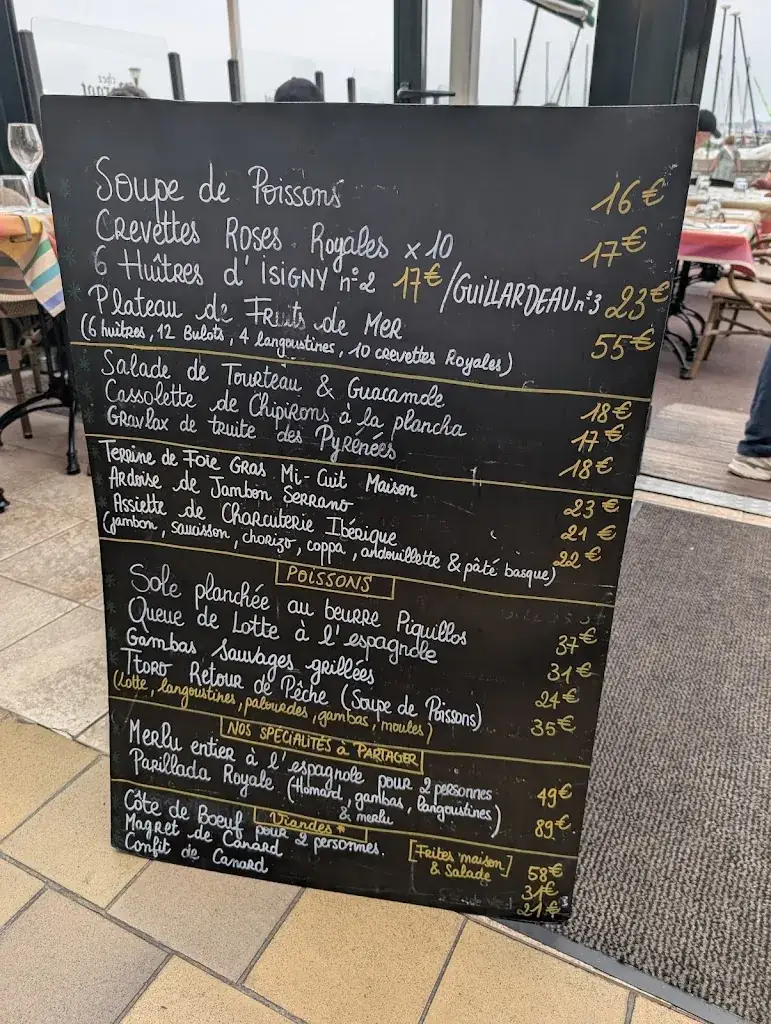 chez
Soupe de Poissons 16€
Crevettes Roses Royales x10 17€
6 Huîtres d'ISIGNY n°2 17€/GUILLARDEAU n°3 23€
Plateau de Fruits de Mer 55€
(6 huîtres, 12 Bulots, 4 langoustines, 10 crevettes Royales)
Salade de Tourteau & Guacamole 18€
Cassolette de Chipirons à la plancha 17€
Gravlax de truite des Pyrénées 18€
Terrine de Foie Gras Mi-Cuit Maison 23€
Ardoise de Jambon Serrano 21€
Assiette de Charcuterie Ibérique 22€
(jambon, saucisson, chorizo, coppa, andouillette & pâté basque)
POISSONS
Sole planchée au beurre Piquillos 37€
Queue de Lotte à l'espagnole 31€
Gambas sauvages grillées 24€
Ttoro Retour de Pêche (Soupe de Poissons) 35€
(Lotte, langoustines, palourdes, gambas, moules)
NOS SPÉCIALITÉS à PARTAGER
Merlu entier à l'espagnole pour 2 personnes 49€
Parillada Royale (Homard, gambas, langoustines & merlu) 89€
Viandes*
[Frites maison & Salade]
Côte de Boeuf pour 2 personnes. 58€
Magret de Canard 31€
Confit de Canard 21€